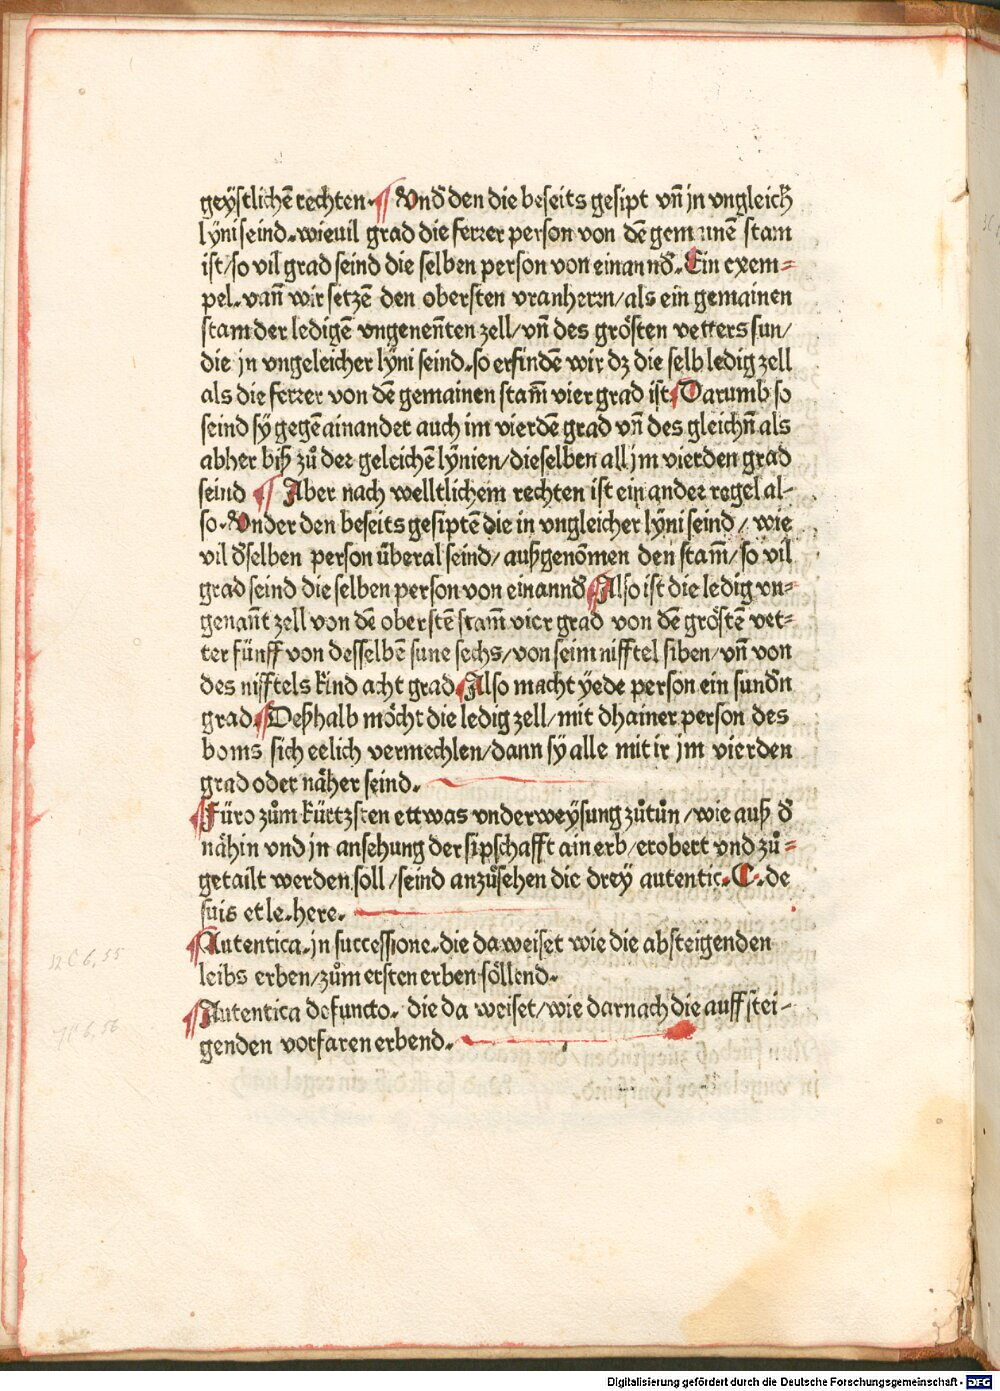 geÿstlichē rechten. ¶ Vnd̄ den die beseits gesipt vn̄ jn vngleich
lÿni seind. wieuil grad die ferrer person von dē gemainē stam
ist/ so vil grad seind die selben person von einannd̄. Ein exem=
pel. vān wir setzē den obersten vranherrn/ als ein gemainen
stam der ledigē vngenen̄ten zell/ vn̄ des grösten vetters sun/
die jn vngeleicher lÿni seind. so erfindē wir dz die selb ledig zell
als die ferrer von dē gemainen stam̄ vier grad ist. ¶ Darumb so
seind sÿ gegē ainander auch im vierdē grad vn̄ des gleichn̄ als
abher biß zů der geleichē lÿnien/ dieselben all jm vierden grad
seind ¶ Aber nach welltlichem rechten ist ein ander regel al-
so. Vnder den beseits gesiptē die in vngleicher lÿni seind/ wie
vil d̄selben person überal seind/ außgenōmen den stam̄/ so vil
grad seind die selben person von einannd̄ ¶ Also ist die ledig vn=
genan̄t zell von dē oberstē stam̄ vier grad von dē gröstē vet=
ter fünff von desselbē sune sechs/ von seim nifftel siben/ vn̄ von
des nifftels kind acht grad ¶ Also macht ÿede person ein sund̄n
grad. ¶ Deßhalb möcht die ledig zell/ mit dhainer person des
boms sich eelich vermechlen/ dann sÿ alle mit ir jm vierden
grad oder näher seind.
¶ Füro zům kürtzsten ettwas vnderweÿsung zůtůn/ wie auß d̄
nähin vnd jn ansehung der sipschafft ain erb/ erobert vnd zů=
getailt werden soll/ seind anzůsehen die dreÿ autentic. C. de
suis et le. here.
¶ Autentica. jn successione. die da weiset wie die absteigenden
leibs erben/ zům ersten erben söllend.
¶ Autentica defuncto. die da weiset/ wie darnach die auffstei-
genden vorfaren erbend.
12 C 6, 55
7 C 6, 56
Digitalisierung gefördert durch die Deutsche Forschungsgemeinschaft - DFG